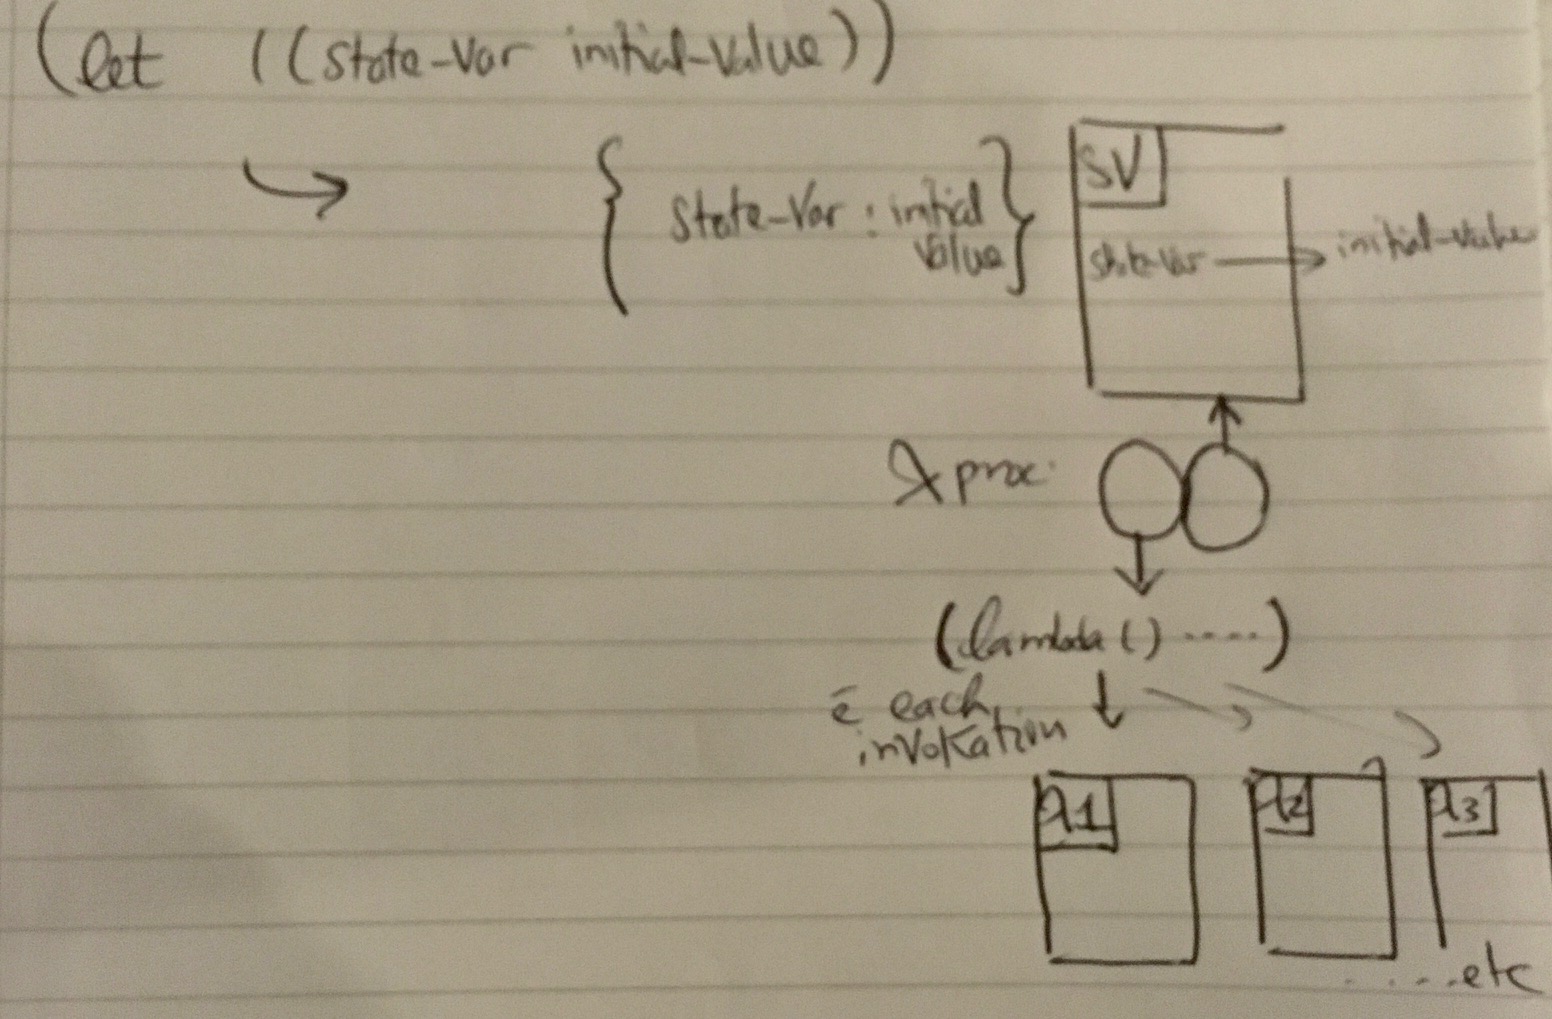 (let ((state-var initial-value))
{ state-var : initial
value }
SV
state-var → initial-value
λ proc.
(lambda () .....)
c̄ each
invokation
λ1
λ2
λ3
.....etc